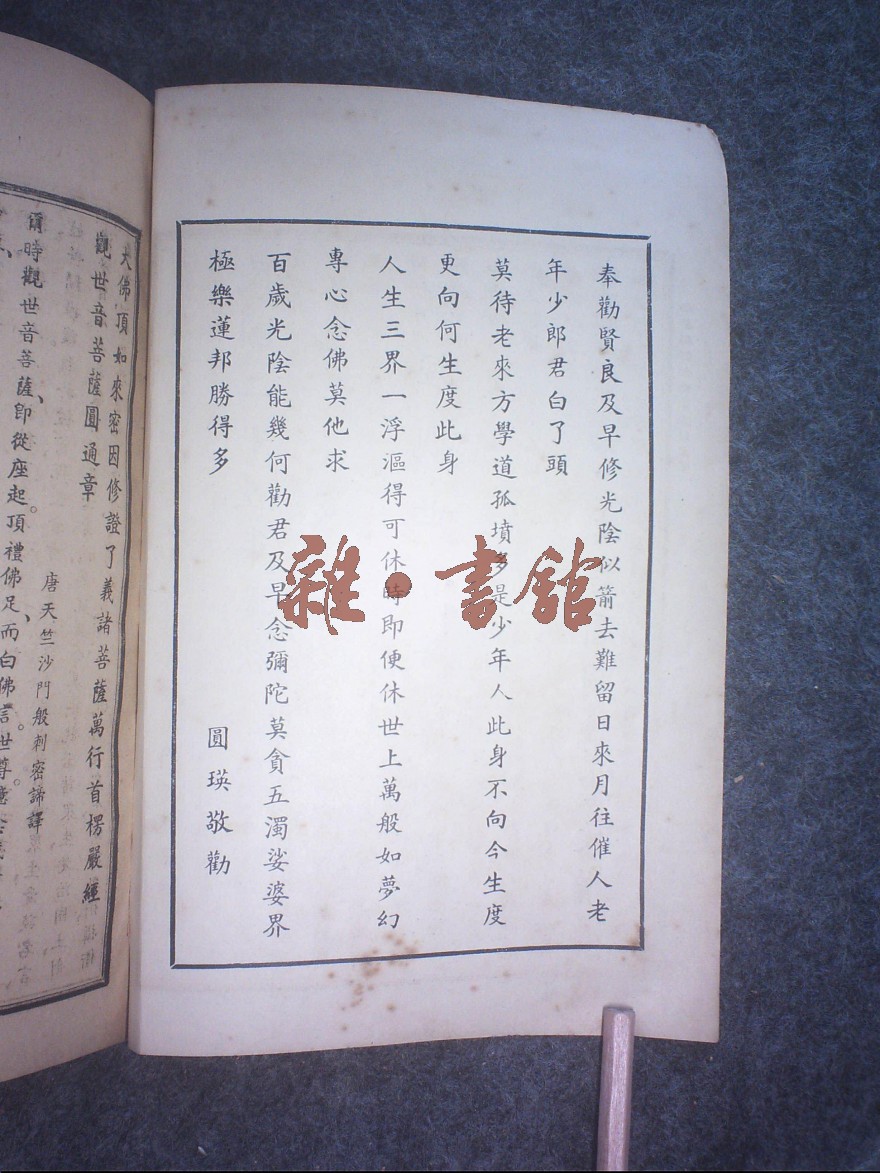 奉勸賢良及早修光陰似箭去難留日來月往催人老
年少郎君白了頭
莫待老來方學道孤墳多是少年人此身不向今生度
更向何生度此身
人生三界一浮漚得可休時即便休世上萬般如夢幻
專心念佛莫他求
百歲光陰能幾何勸君及早念彌陀莫貪五濁娑婆界
極樂蓮邦勝得多
圓瑛敬勸
雜·書舘
大佛頂如來密因修證了義諸菩薩萬行首楞嚴經
觀世音菩薩圓通章
唐天竺沙門般刺密諦譯
爾時觀世音菩薩、即從座起。頂禮佛足、而白佛言。世尊